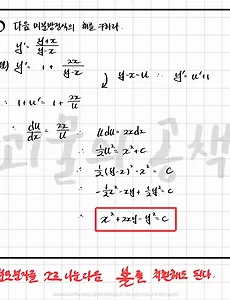 다음 미분방정식의 해를 구하라.
y' = (y+x)/(y-x)
y' = 1 + 2x/(y-x)
y-x=u ∴ y'=u'+1
∴ 1+u' = 1+ 2x/u
∴ du/dx = 2x/u ∴ udu = 2xdx
∴ ½u² = x²+C
∴ ½(y-x)²-x² = C
∴ -½x²-xy+½y² = C
∴ x²+2xy-y²=C
x로 나눈 다음 치환해도 된다.